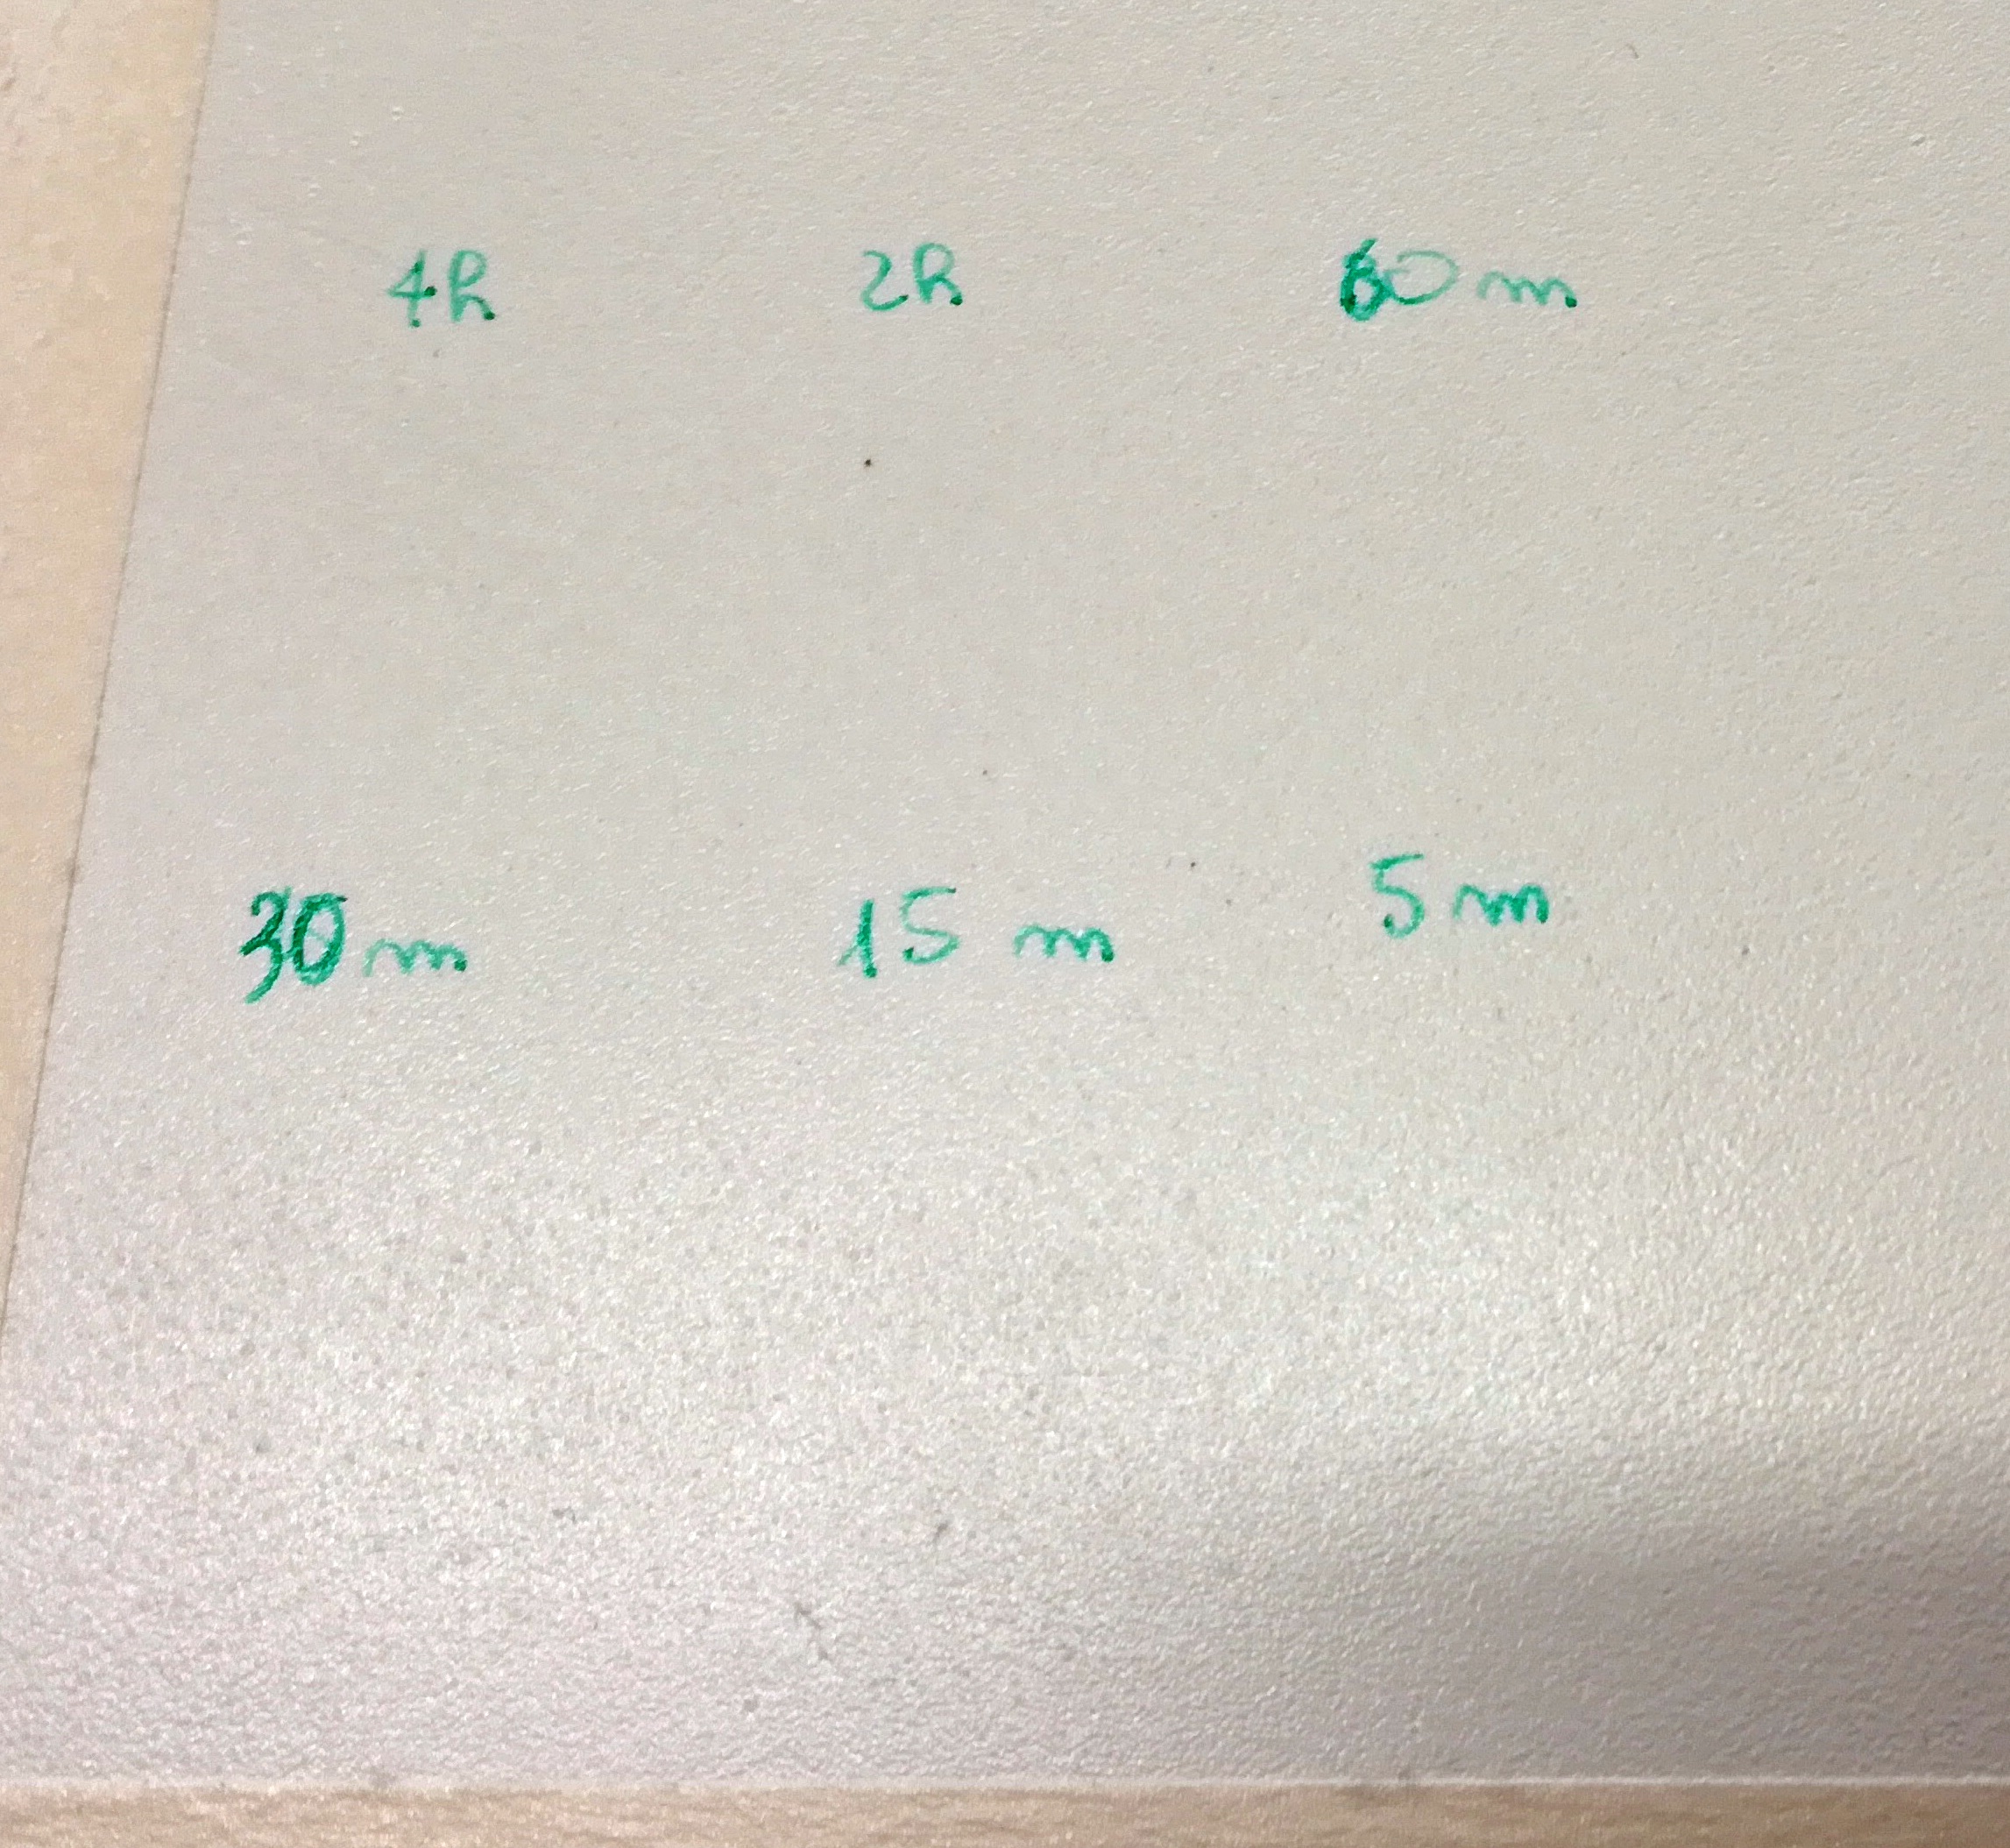 4h 2h 60 m
30 m 15 m 5 m